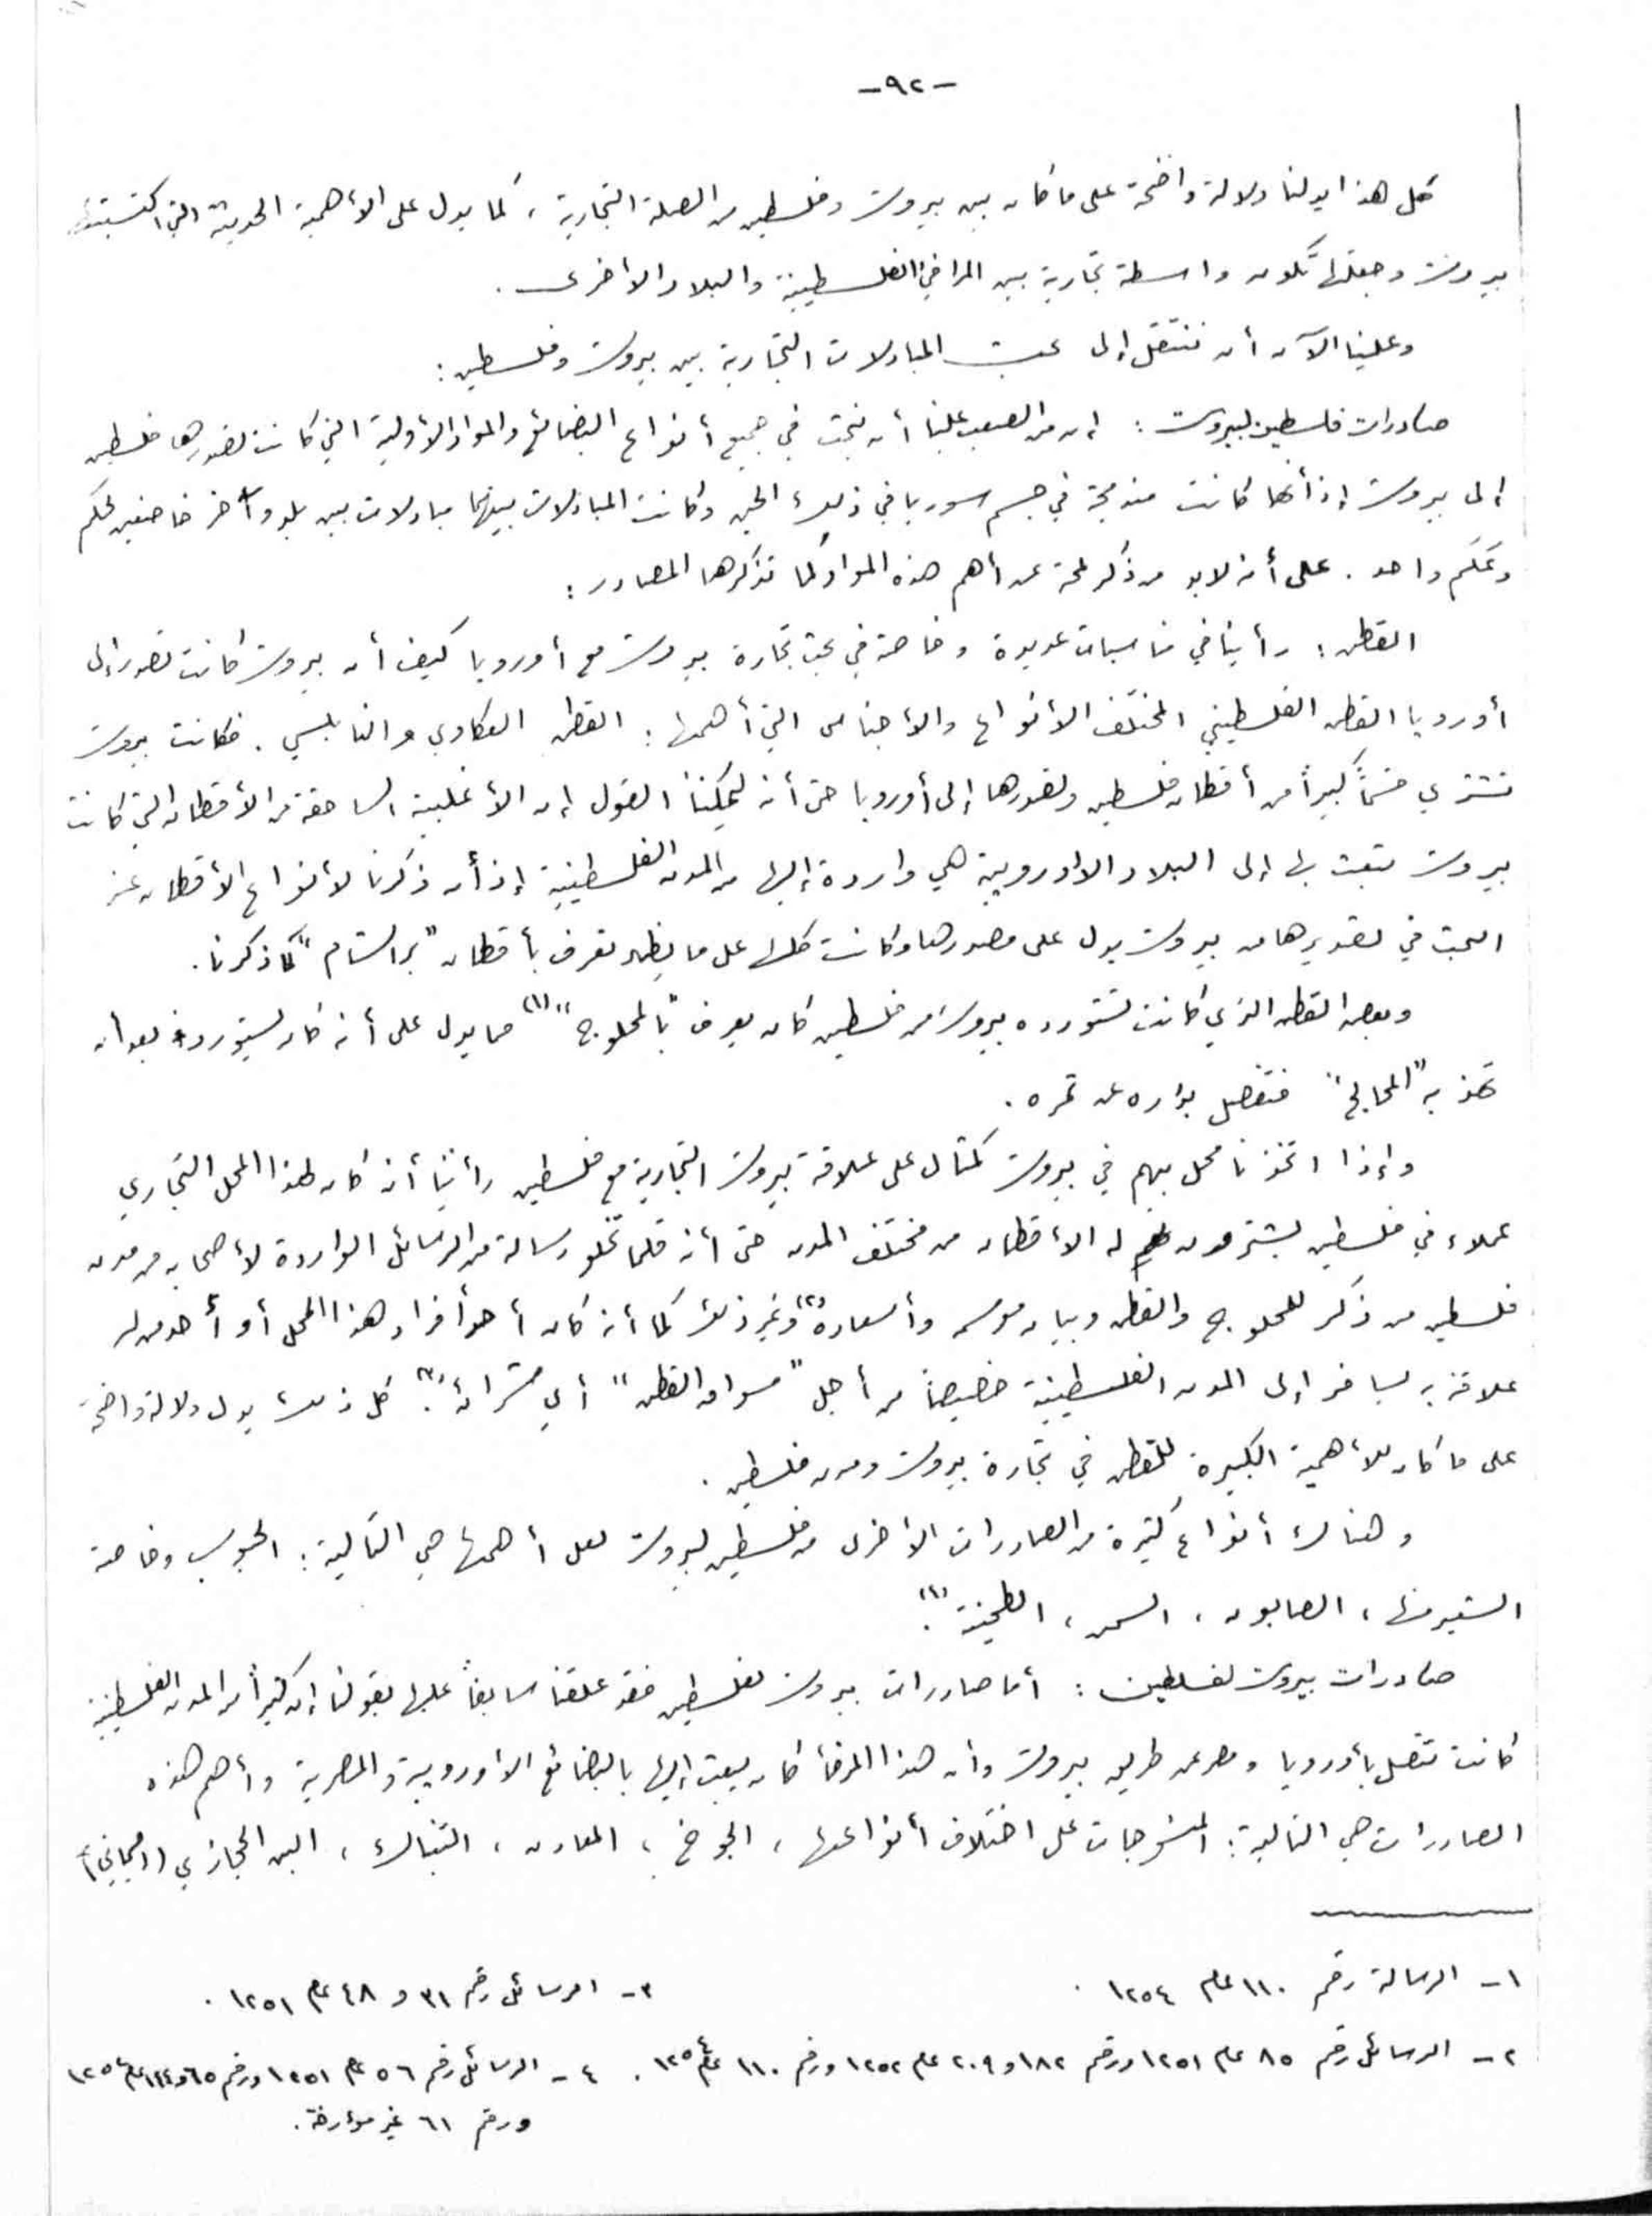 -٩٢-
كل هذا يدلنا دلالة واضحة على ما كان بين بيروت وفلسطين من الصلة التجارية ، كما يدل على الأهمية الحديثة التي اكتسبتها
بيروت وجعلتها تكون واسطة تجارية بين المرافئ الفلسطينية والبلاد الأخرى .
وعلينا الآن أن ننتقل إلى بحث المبادلات التجارية بين بيروت وفلسطين :
صادرات فلسطين لبيروت : إن من الصعب علينا أن نبحث في جميع أنواع البضائع والمواد الأولية التي كانت تصدرها فلسطين
إلى بيروت إذ أنها كانت مندمجة في جسم سوريا في ذلك الحين وكانت المبادلات بينهما مبادلات بين بلد وآخر خاضعين لحكم
وتحكم واحد . على أنه لا بد من ذكر لمحة عن أهم هذه المواد كما تذكرها المصادر :
القطن : رأينا في مناسبات عديدة وخاصة في بحث تجارة بيروت مع أوروبا كيف أن بيروت كانت تصدر إلى
أوروبا القطن الفلسطيني المختلف الأنواع والأجناس التي أهمها : القطن العكاوي والنابلسي . فكانت بيروت
تشتري قسماً كبيراً من أقطان فلسطين وتصدرها إلى أوروبا حتى أنه ليمكننا القول إن الأغلبية الساحقة من الأقطان التي كانت
بيروت تبعث بها إلى البلاد الاوروبية هي واردة إليها من المدن الفلسطينية إذ أن ذكرنا لأنواع الأقطان عند
البحث في تصديرها من بيروت يدل على مصدرها وكانت كلها على ما يظهر تعرف بأقطان "بر الشام" كما ذكرنا .
وبعض القطن الذي كانت تستورده بيروت من فلسطين كان يعرف "بالمحلوج" (١) مما يدل على أنه كان يستورد بعد أن
تمر به "المحالج" فتفصل بذاره عن ثمره .
وإذا اتخذنا محل بيهم في بيروت كمثال على علاقة بيروت التجارية مع فلسطين رأينا أنه كان لهذا المحل التجاري
عملاء في فلسطين يشترون له الأقطان من مختلف المدن حتى أنه قلما تخلو رسالة من الرسائل الواردة لأصحابه من مدن
فلسطين من ذكر للمحلوج والقطن وبيان موسمه وأسعاره (٢) وغير ذلك كما أنه كان أحد أفراد هذا المحل أو أحد من له
علاقة به يسافر إلى المدن الفلسطينية خصيصاً من أجل "مسواق القطن" أي شرائه (٣) . كل ذلك يدل دلالة واضحة
على ما كان للأهمية الكبيرة للقطن في تجارة بيروت ومدن فلسطين .
وهناك أنواع كثيرة من الصادرات الأخرى من فلسطين لبيروت لعل أهمها هي التالية : الحبوب وخاصة
الشعير منها ، الصابون ، السمن ، الطحينة (٤) .
صادرات بيروت لفلسطين : أما صادرات بيروت لفلسطين فقد علقنا سابقاً عليها بقولنا إن كثيراً من المدن الفلسطينية
كانت تتصل بأوروبا ومصر عن طريق بيروت وأن هذا المرفأ كان يبعث إليها بالبضائع الاوروبية والمصرية وأهم هذه
الصادرات هي التالية : المنسوجات على اختلاف أنواعها ، الجوخ ، المعادن ، التنباك ، البن الحجازي (اليماني)
١- الرسالة رقم ١١٠ عام ١٢٥٤ .
٣- الرسائل رقم ٣١ و ٤٨ عام ١٢٥١ .
٢- الرسائل رقم ٨٥ عام ١٢٥١ ورقم ١٨٢ و ٢٠٩ عام ١٢٥٢ ورقم ١١٠ عام ١٢٥٤ .
٤- الرسائل رقم ٥٦ عام ١٢٥١ ورقم ٦٥ و ١١٤ عام ١٢٥٤
ورقم ٦١ غير مؤرخة .